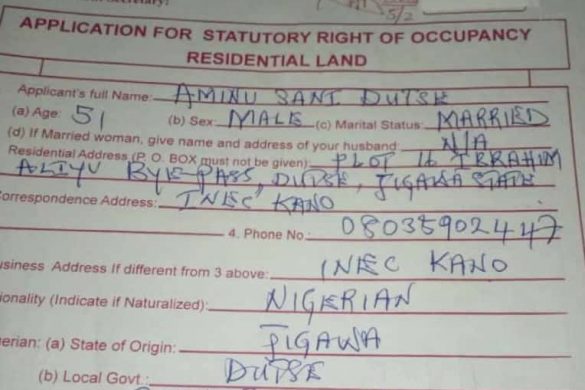 5/2
APPLICATION FOR STATUTORY RIGHT OF OCCUPANCY
RESIDENTIAL LAND
Applicant's full Name: AMINU SANI DUTSE
(a) Age: 51 (b) Sex: MALE (c) Marital Status: MARRIED
(d) If Married woman, give name and address of your husband: N/A
Residential Address (P. O. BOX must not be given): PLOT 16 IBRAHIM
ALIYU BYE-PASS, DUTSE, JIGAWA STATE
orrespondence Address: INEC KANO
4. Phone No.: 08035902447
usiness Address If different from 3 above: INEC KANO
ionality (Indicate if Naturalized): NIGERIAN
erian: (a) State of Origin: JIGAWA
(b) Local Govt.: DUTSE